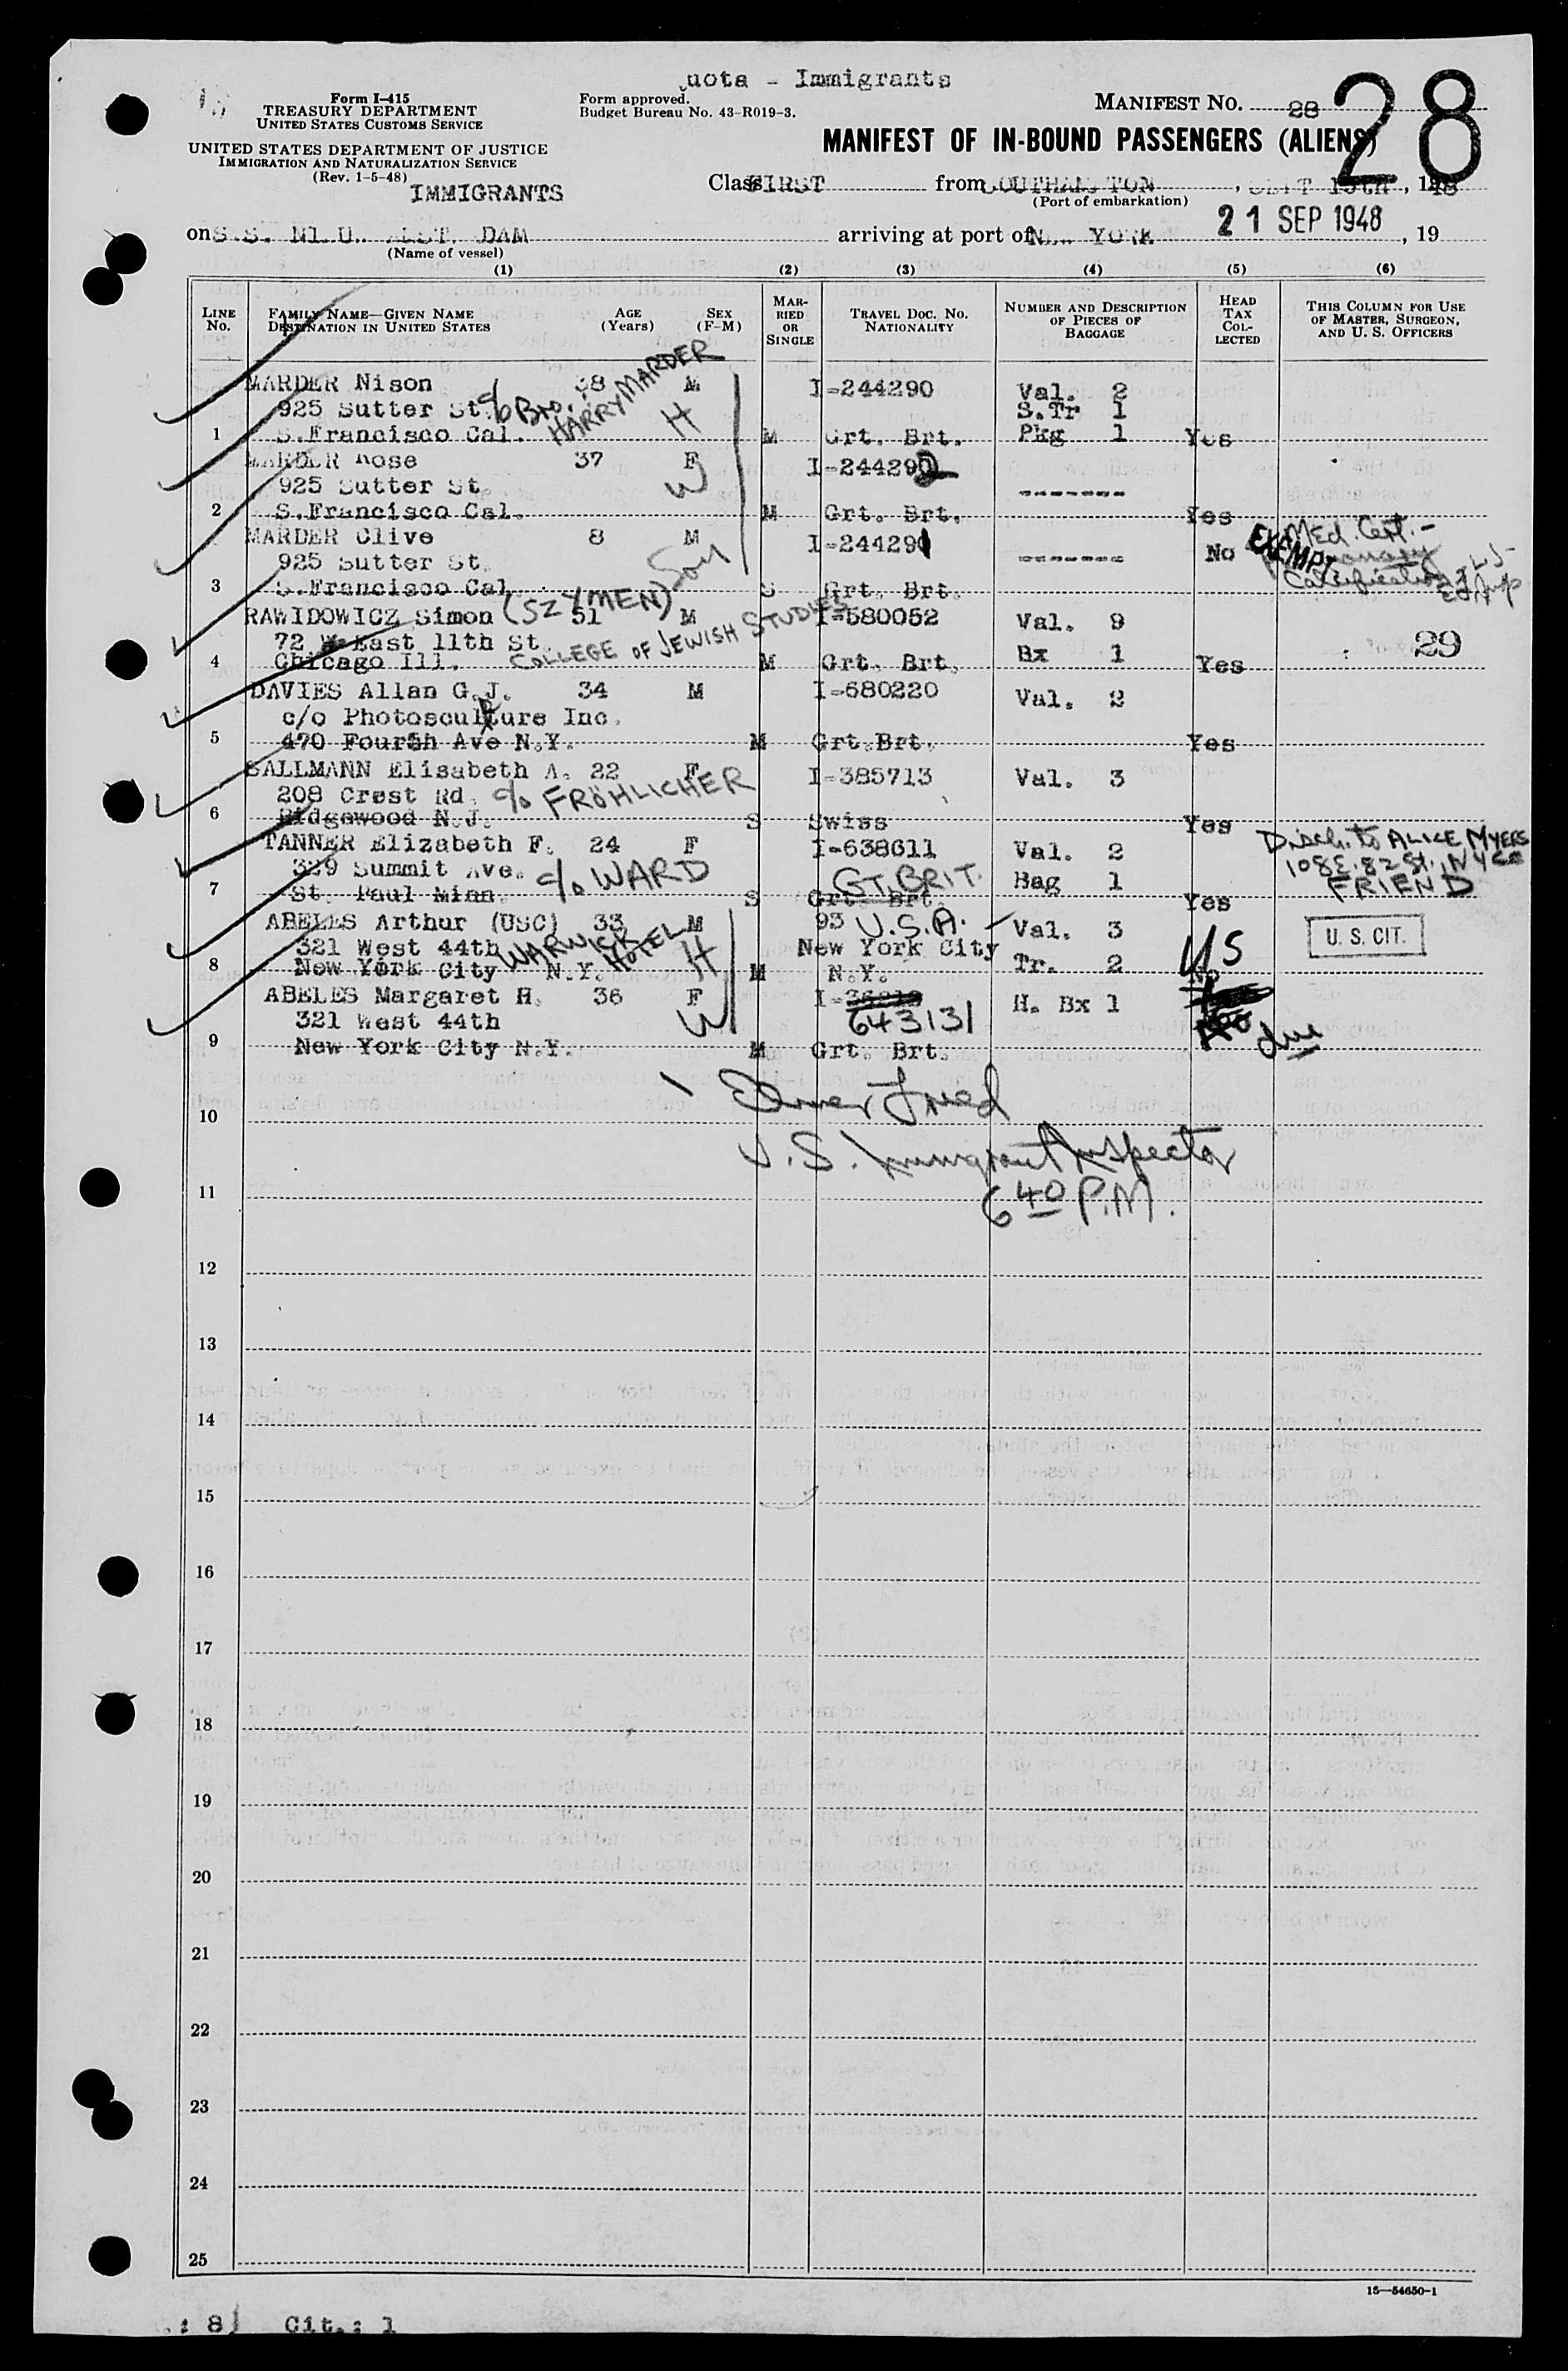 uota - Immigrants
Form I-415
TREASURY DEPARTMENT
UNITED STATES CUSTOMS SERVICE
UNITED STATES DEPARTMENT OF JUSTICE
IMMIGRATION AND NATURALIZATION SERVICE
(Rev. 1-5-48)
IMMIGRANTS
Form approved.
Budget Bureau No. 43-R019-3.
MANIFEST NO. 28
28
MANIFEST OF IN-BOUND PASSENGERS (ALIENS)
Class FIRST from SOUTHAMPTON, SEPT 15th, 1948
(Port of embarkation)
on S.S. NIEUW AMSTERDAM arriving at port of NEW YORK 21 SEP 1948, 19
(Name of vessel)
(1) (2) (3) (4) (5) (6)
LINE No. FAMILY NAME—GIVEN NAME DESTINATION IN UNITED STATES AGE (Years) SEX (F-M) MARRIED OR SINGLE TRAVEL DOC. NO. NATIONALITY NUMBER AND DESCRIPTION OF PIECES OF BAGGAGE HEAD TAX COLLECTED THIS COLUMN FOR USE OF MASTER, SURGEON, AND U. S. OFFICERS
MARDER Nison 38 M I-244290 Val. 2
925 Sutter St. c/o Bro. HARRY MARDER H S.Tr 1
1 S.Francisco Cal. M Grt. Brt. Pkg 1 Yes
MARDER Rose 37 F I-244292
925 Sutter St W -------
2 S.Francisco Cal. M Grt. Brt. Yes
MARDER Clive 8 M I-244291 No EXEMPT Med. Cert.-
925 Sutter St. Son -------
3 S.Francisco Cal S Grt. Brt.
RAWIDOWICZ Simon (SZYMEN) 51 M I-580052 Val. 9
72 East 11th St. COLLEGE OF JEWISH STUDIES 29
4 Chicago Ill. M Grt. Brt. Bx 1 Yes
DAVIES Allan G.J. 34 M I-680220 Val. 2
c/o Photosculpture Inc.
5 470 Fourth Ave N.Y. M Grt.Brt. Yes
SALLMANN Elisabeth A. 22 F I-385713 Val. 3
208 Crest Rd. c/o FRÖHLICHER
6 Ridgewood N.J. S Swiss Yes
TANNER Elizabeth F. 24 F I-638611 Val. 2 Disch. to ALICE MYERS
329 Summit Ave. c/o WARD GT. BRIT. Bag 1 108 E. 82 St., NYC
7 St. Paul Minn. S Grt. Brt. Yes FRIEND
ABELES Arthur (USC) 33 M 93 U.S.A. Val. 3 U. S. CIT.
321 West 44th WARWICK HOTEL H New York City US
8 New York City N.Y. M N.Y. Tr. 2 No
ABELES Margaret H. 36 F I- H. Bx 1
321 West 44th W 643131 due
9 New York City N.Y. M Grt. Brt.
Elmer Fried
10
U.S. Immigrant Inspector
11
6 40 P.M.
12
13
14
15
16
17
18
19
20
21
22
23
24
25
15—54650-1
: 8 Cit.: 1